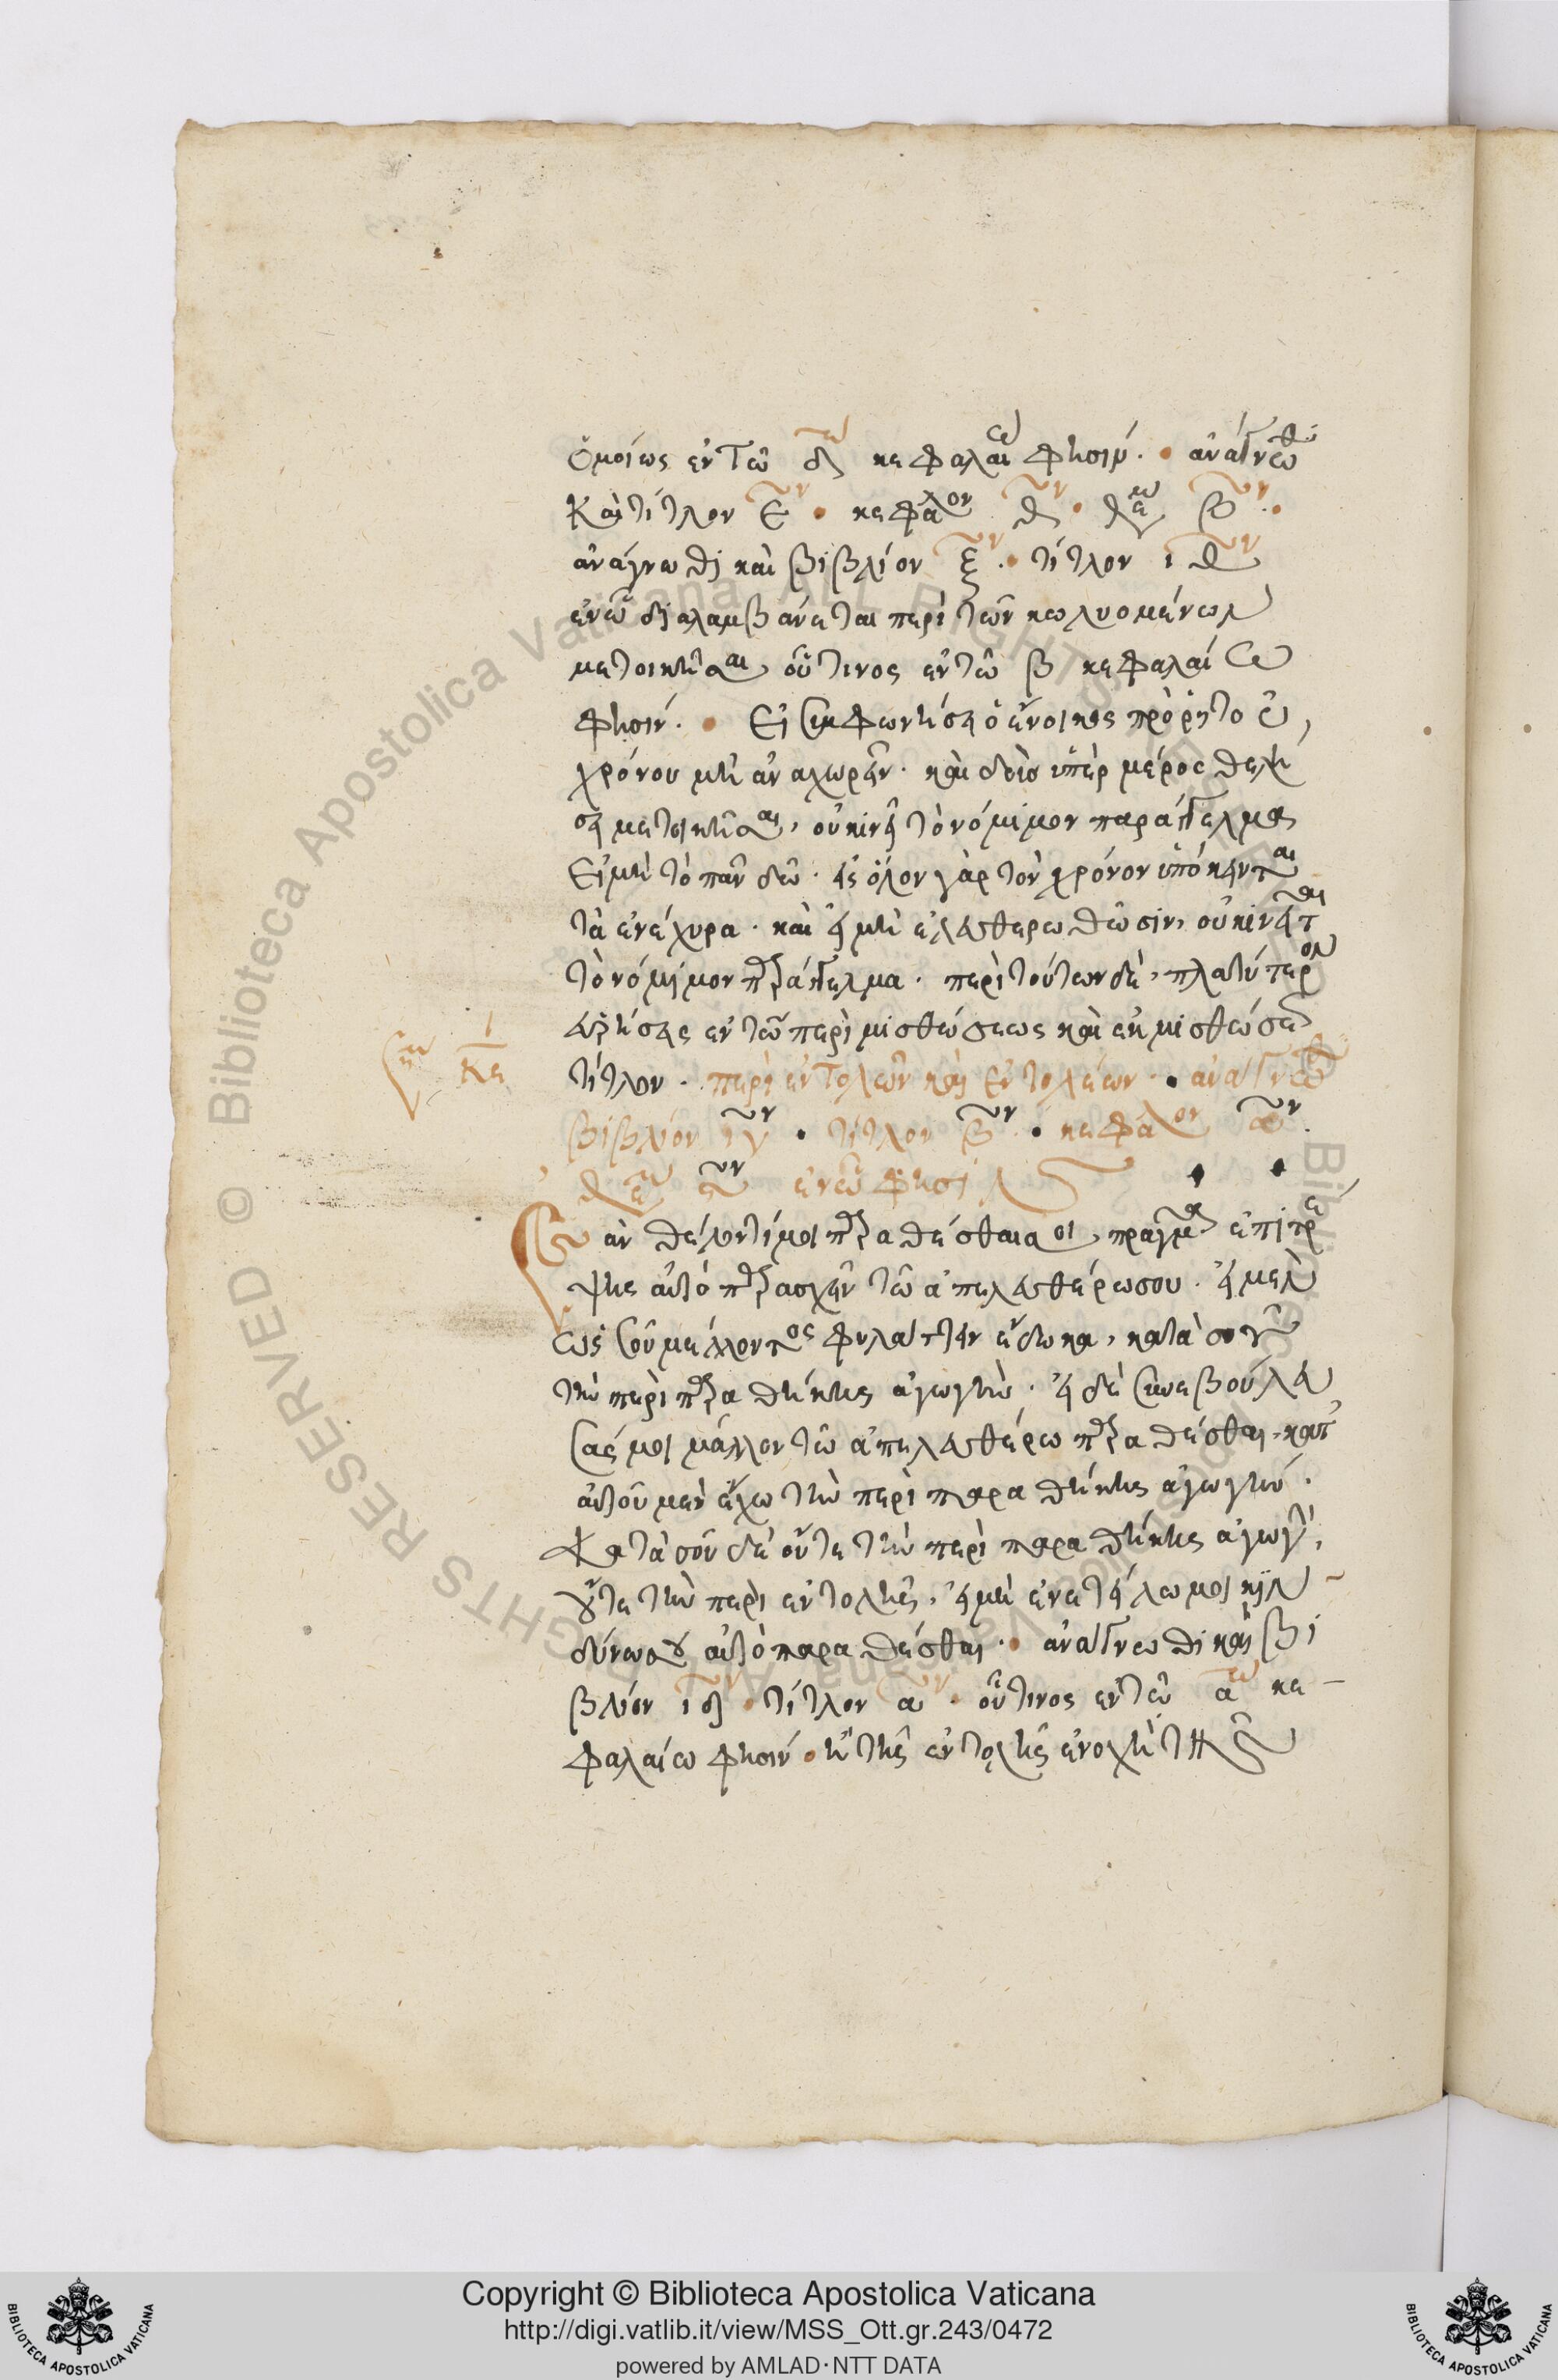 ὁμοίως ἐν τῶ δ κεφαλαίω φησίν. ἀνάγνωθι
Καὶ τίτλον ε κεφάλαιον θ θέμα β
ἀνάγνωθι καὶ βιβλίον ξ τίτλον ιθ
ἐν ὧ διαλαμβάνεται περὶ τῶν κωλυομένων
μετοικῆσαι, οὗτινος ἐν τῶ β κεφαλαίω
φησίν. Εἰ συμφωνήσει ὁ ἔνοικος πρὸ ῥητοῦ
χρόνου μὴ ἀναχωρεῖν. καὶ δοὺς ὑπὲρ μέρος θελή
σει μετοικῆσαι, οὐ κινεῖ τὸ νόμιμον παράγγελμα
Εἰ μὴ τὸ πᾶν δῶ. εἰς ὅλον γὰρ τὸν χρόνον ὑπόκειται
τὰ ἐνέχυρα. καὶ εἰ μὴ ἐλευθερωθῶσιν, οὐ κινεῖται
τὸ νόμιμον παράγγελμα. περὶ τούτων δὲ, πλατύτερον
εὑρήσεις ἐν τῶ περὶ μισθώσεως καὶ ἐκμισθώσεως
κε
τίτλον. περὶ ἐντολῶν καὶ ἐντολέων. ἀνάγνωθι
βιβλίον ιγ τίτλον β κεφάλαιον α
θέμα ἐν ὧ φησίν
Ἐὰν θέλοντί μοι παραθέσθαι σοι, πράγμα ἐπιτρέ
ψης αὐτὸ παρασχεῖν τῶ ἀπελευθέρω σου. εἰ μὲν
ὡς σοῦ μέλλοντος φυλάττειν ἔδωκα, κατὰ σοῦ
τὴν περὶ παραθήκης ἀγωγὴν. εἰ δὲ συνεβούλευ
σάς μοι μᾶλλον τῶ ἀπελευθέρω παραθέσθαι, κατ'
αὐτοῦ μὲν ἔχω τὴν περὶ παραθήκης ἀγωγήν.
Κατὰ σοῦ δὲ οὔτε τὴν περὶ παραθήκης ἀγωγὴν,
οὔτε τὴν περὶ ἐντολῆς, εἰ μὴ ἐνετείλω μοι κιν
δύνω σου αὐτὸ παραθέσθαι. ἀνάγνωθι καὶ βι
βλίον ιδ τίτλον α. οὗτινος ἐν τῶ α κε
φαλαίω φησίν. ἡ τῆς ἐντολῆς ἐνοχὴ
Copyright © Biblioteca Apostolica Vaticana
http://digi.vatlib.it/view/MSS_Ott.gr.243/0472
powered by AMLAD·NTT DATA